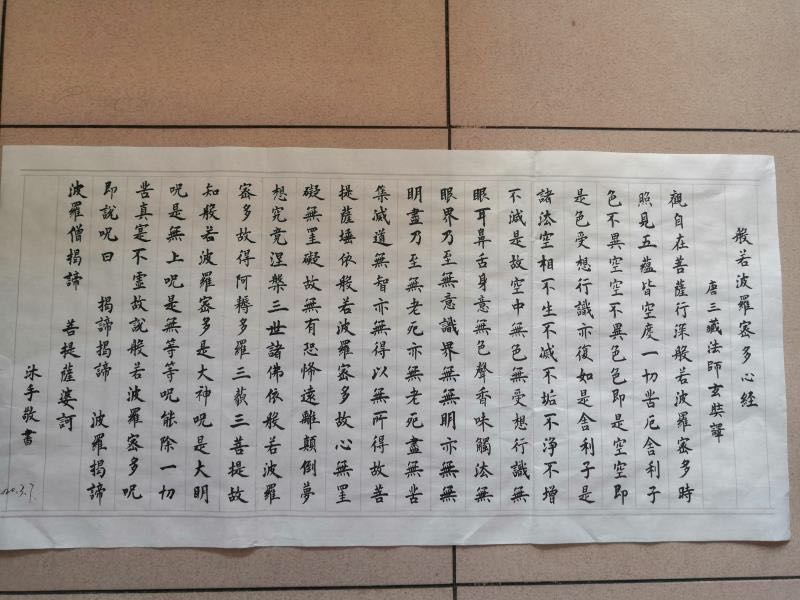 般若波羅蜜多心經
唐三藏法師玄奘譯
觀自在菩薩行深般若波羅蜜多時
照見五蘊皆空度一切苦厄舍利子
色不異空空不異色色即是空空即
是色受想行識亦復如是舍利子是
諸法空相不生不滅不垢不淨不增
不減是故空中無色無受想行識無
眼耳鼻舌身意無色聲香味觸法無
眼界乃至無意識界無無明亦無無
明盡乃至無老死亦無老死盡無苦
集滅道無智亦無得以無所得故菩
提薩埵依般若波羅蜜多故心無罣
礙無罣礙故無有恐怖遠離顛倒夢
想究竟涅槃三世諸佛依般若波羅
蜜多故得阿耨多羅三藐三菩提故
知般若波羅蜜多是大神呪是大明
呪是無上呪是無等等呪能除一切
苦真寔不虛故説般若波羅蜜多呪
即説呪曰 揭諦揭諦 波羅揭諦
波羅僧揭諦 菩提薩婆訶
沐手敬書